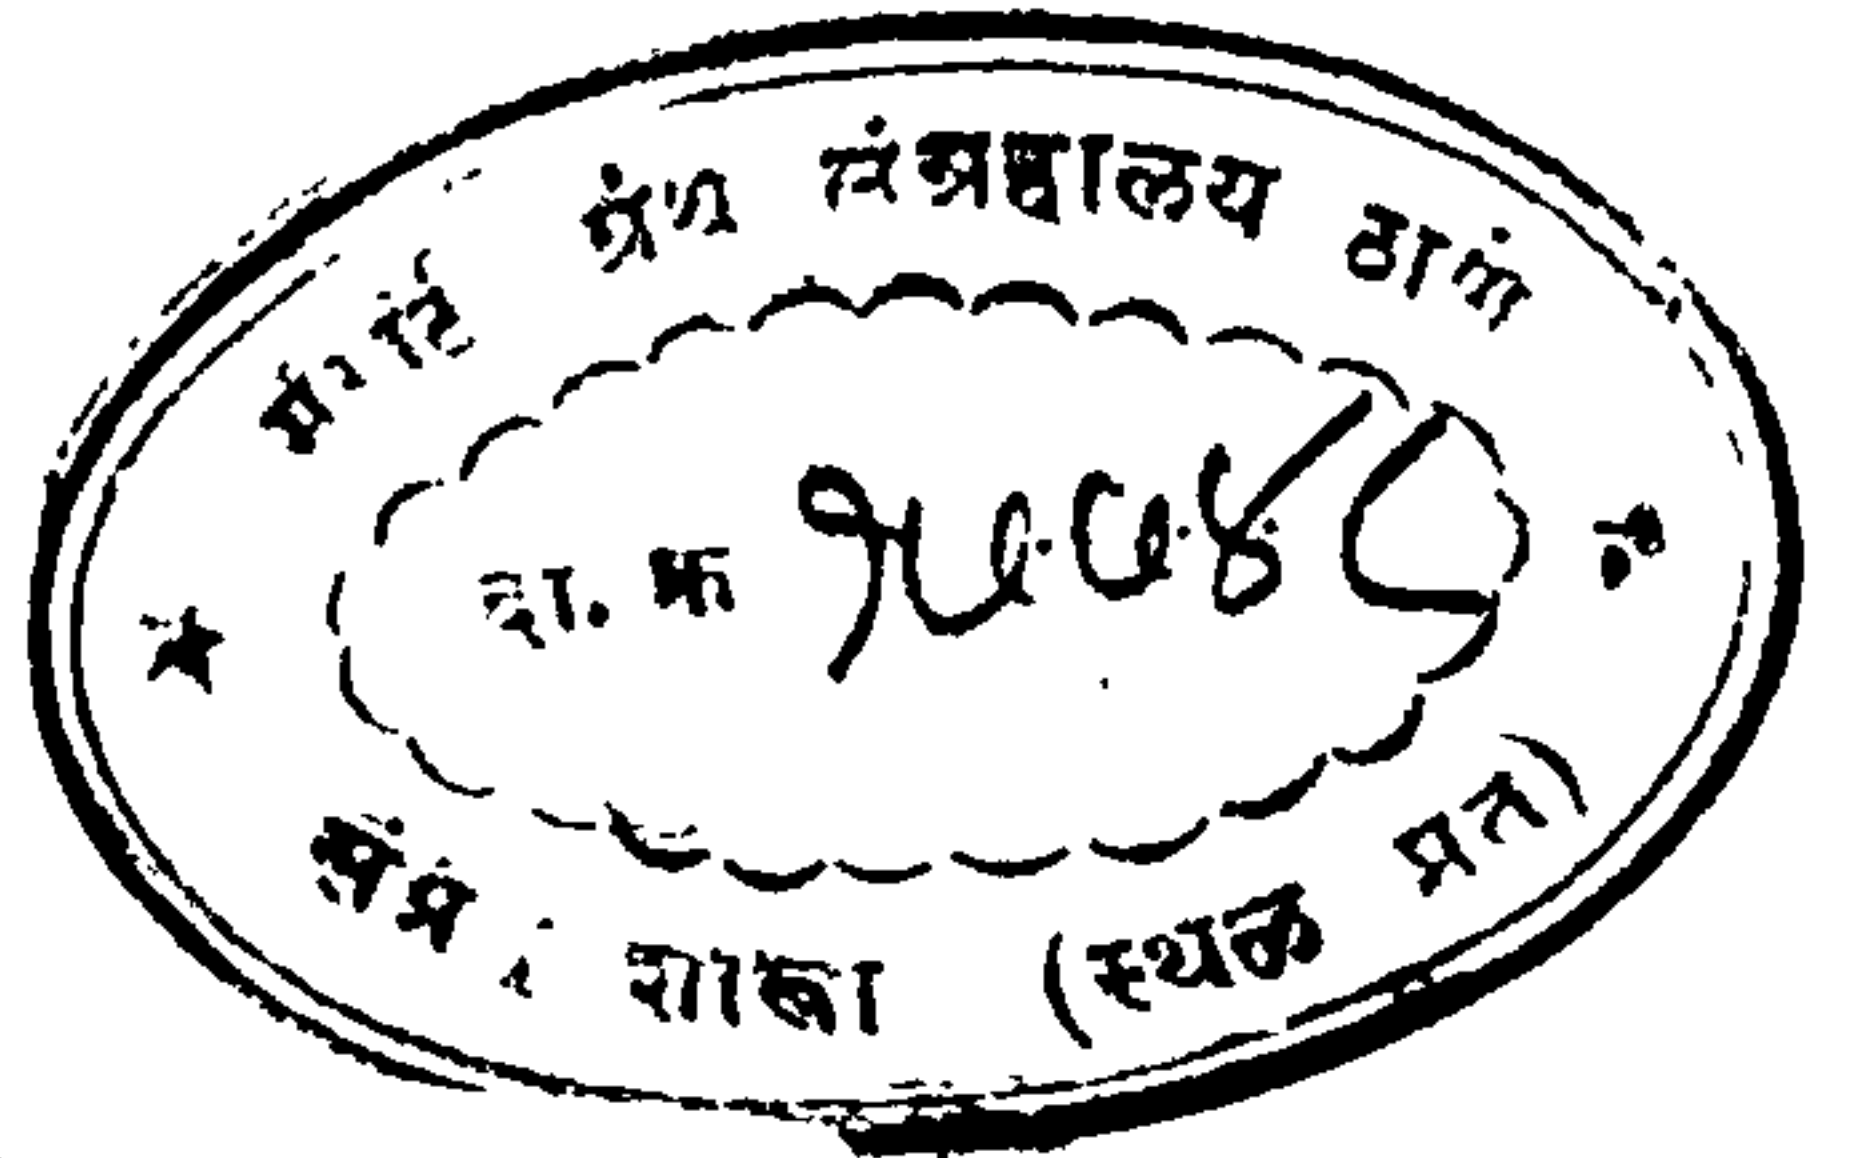 मराठी ग्रंथ संग्रहालय ठाणें
दा. क्र १५५४८
शाखा (स्थळ प्रत)